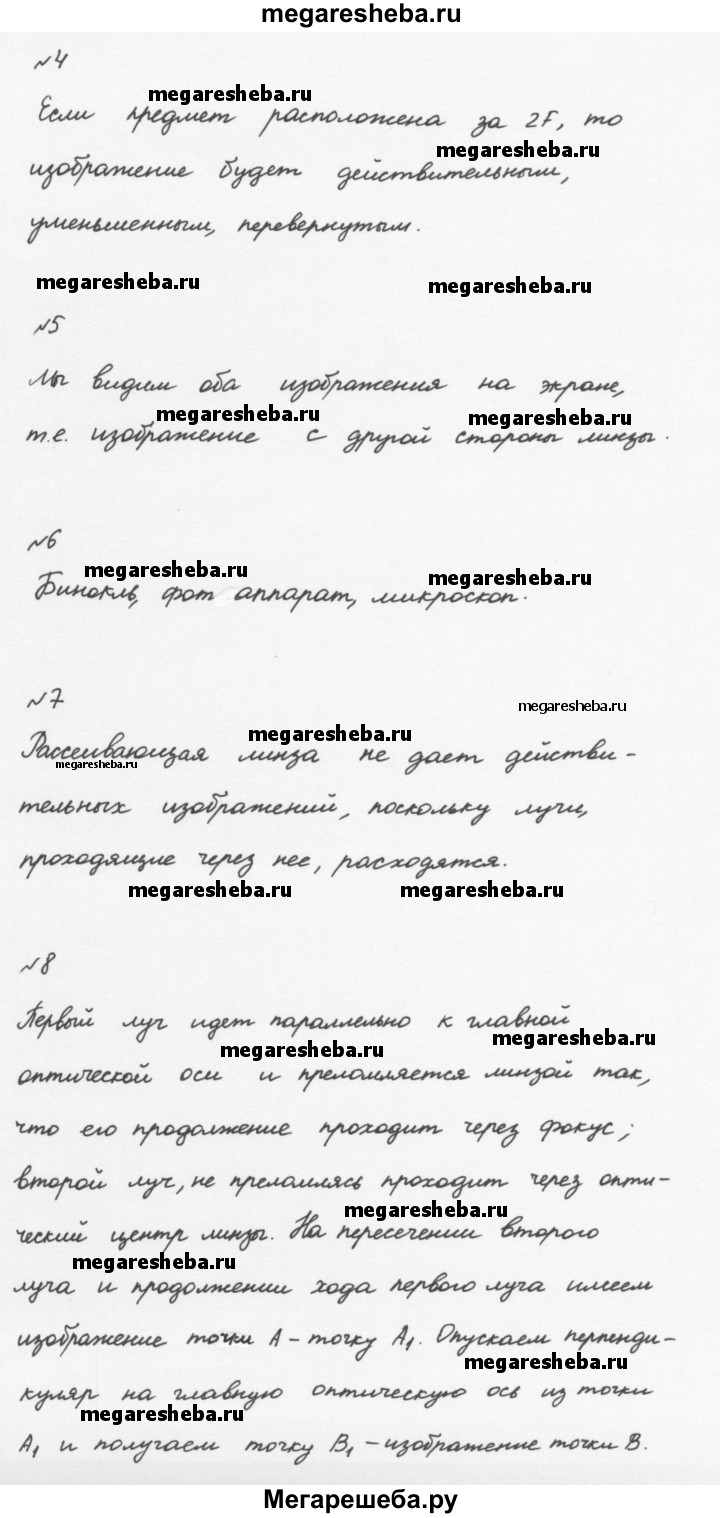 megaresheba.ru
№4
megaresheba.ru
Если предмет расположена за 2F, то
megaresheba.ru
изображение будет действительным,
уменьшенным, перевернутым.
megaresheba.ru megaresheba.ru
№5
Мы видим оба изображения на экране,
megaresheba.ru megaresheba.ru
т.е. изображение с другой стороны линзы.
№6
megaresheba.ru megaresheba.ru
Бинокль, фот аппарат, микроскоп.
№7 megaresheba.ru
megaresheba.ru
Рассеивающая линза не дает действи-
megaresheba.ru
тельных изображений, поскольку лучи,
проходящие через нее, расходятся.
megaresheba.ru megaresheba.ru
№8
Первый луч идет параллельно к главной
megaresheba.ru megaresheba.ru
оптической оси и преломляется линзой так,
что его продолжение проходит через фокус;
второй луч, не преломлясь проходит через опти-
megaresheba.ru
ческий центр линзы. На пересечении второго
megaresheba.ru
луча и продолжении хода первого луча имеем
изображение точки А – точку А₁. Опускаем перпенди-
megaresheba.ru
куляр на главную оптическую ось из точки
megaresheba.ru
А₁ и получаем точку В₁ – изображение точки В.
Мегарешеба.ру